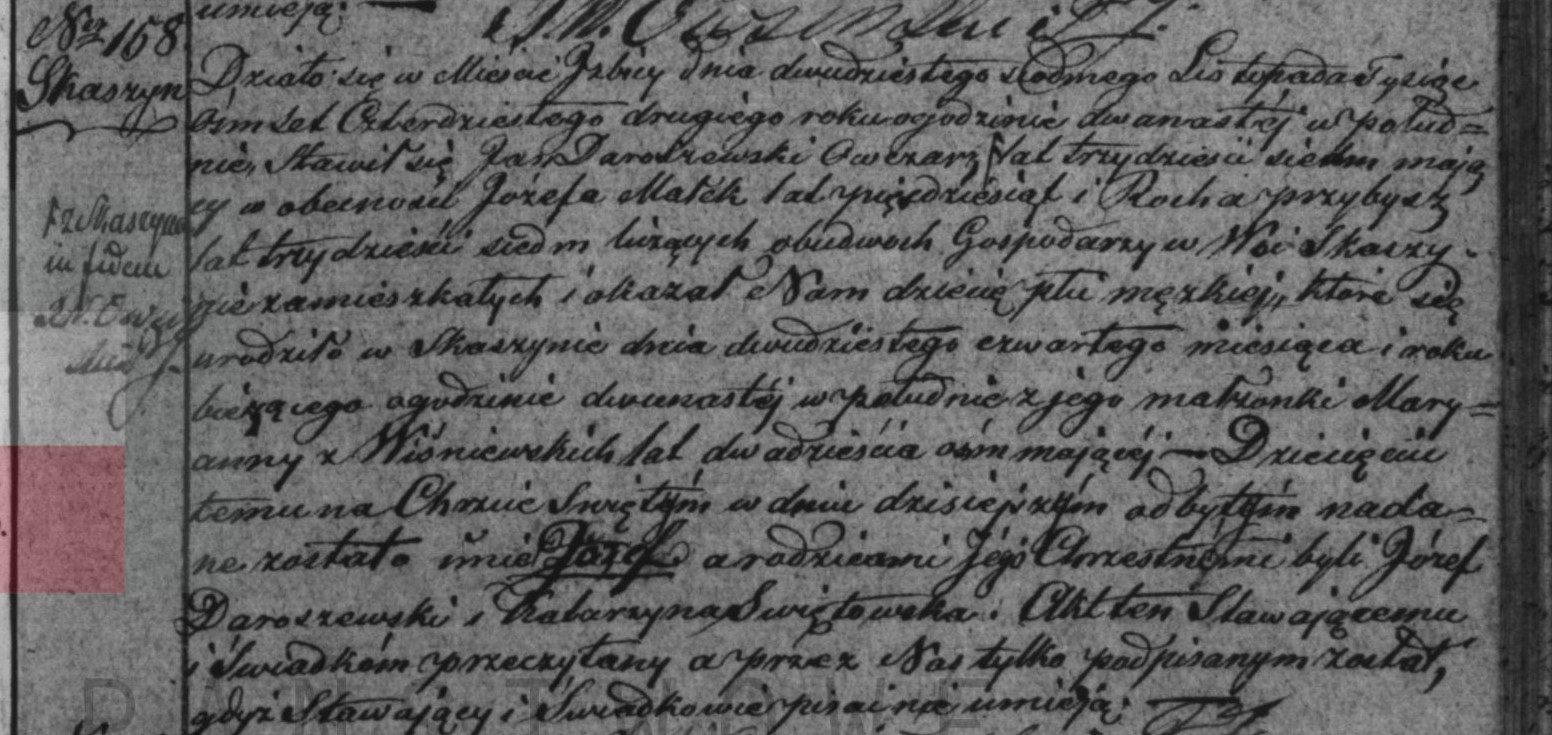 umieją:
Ner 158.
Skaszyn
Działo się w Mieście Izbicy dnia dwudziestego siodmego Listopada Tysiąc
Ośmset Czterdziestego drugiego roku o godzinie dwanastéj w połud=
nie, Stawił się Jan Daroszewski Owczarz ۲ lat trzydzieści siedm mają
cy w obecności Józefa Matek lat pięćdziesiąt i Rocha przybysz
lat trzydzieści siedm liczących obudwoch Gospodarzy w Wsi Skaszy-
nie zamieszkałych i okazał Nam dziecię płci męzkiej, które się
urodziło w Skaszynie dnia dwudziestego czwartego miesiąca i roku
bieżącego o godzinie dwunastéj w południe z jego małżonki Mary=
anny z Wiśniewskich lat dwadzieścia ośm mającéj — Dziecięciu
temu na Chrzcie Świętym w dniu dzisiejszym odbytym nada-
ne zostało imie Józef a rodzicami Jego Chrzestnemi byli Józef
Daroszewski i Katarzyna Swiętowska. Akt ten Stawającemu
i Świadkóm przeczytany a przez Nas tylko podpisanym został,
gdyż Stawający i Świadkowie pisać nie umieją:
z Skaszyna
in fidem